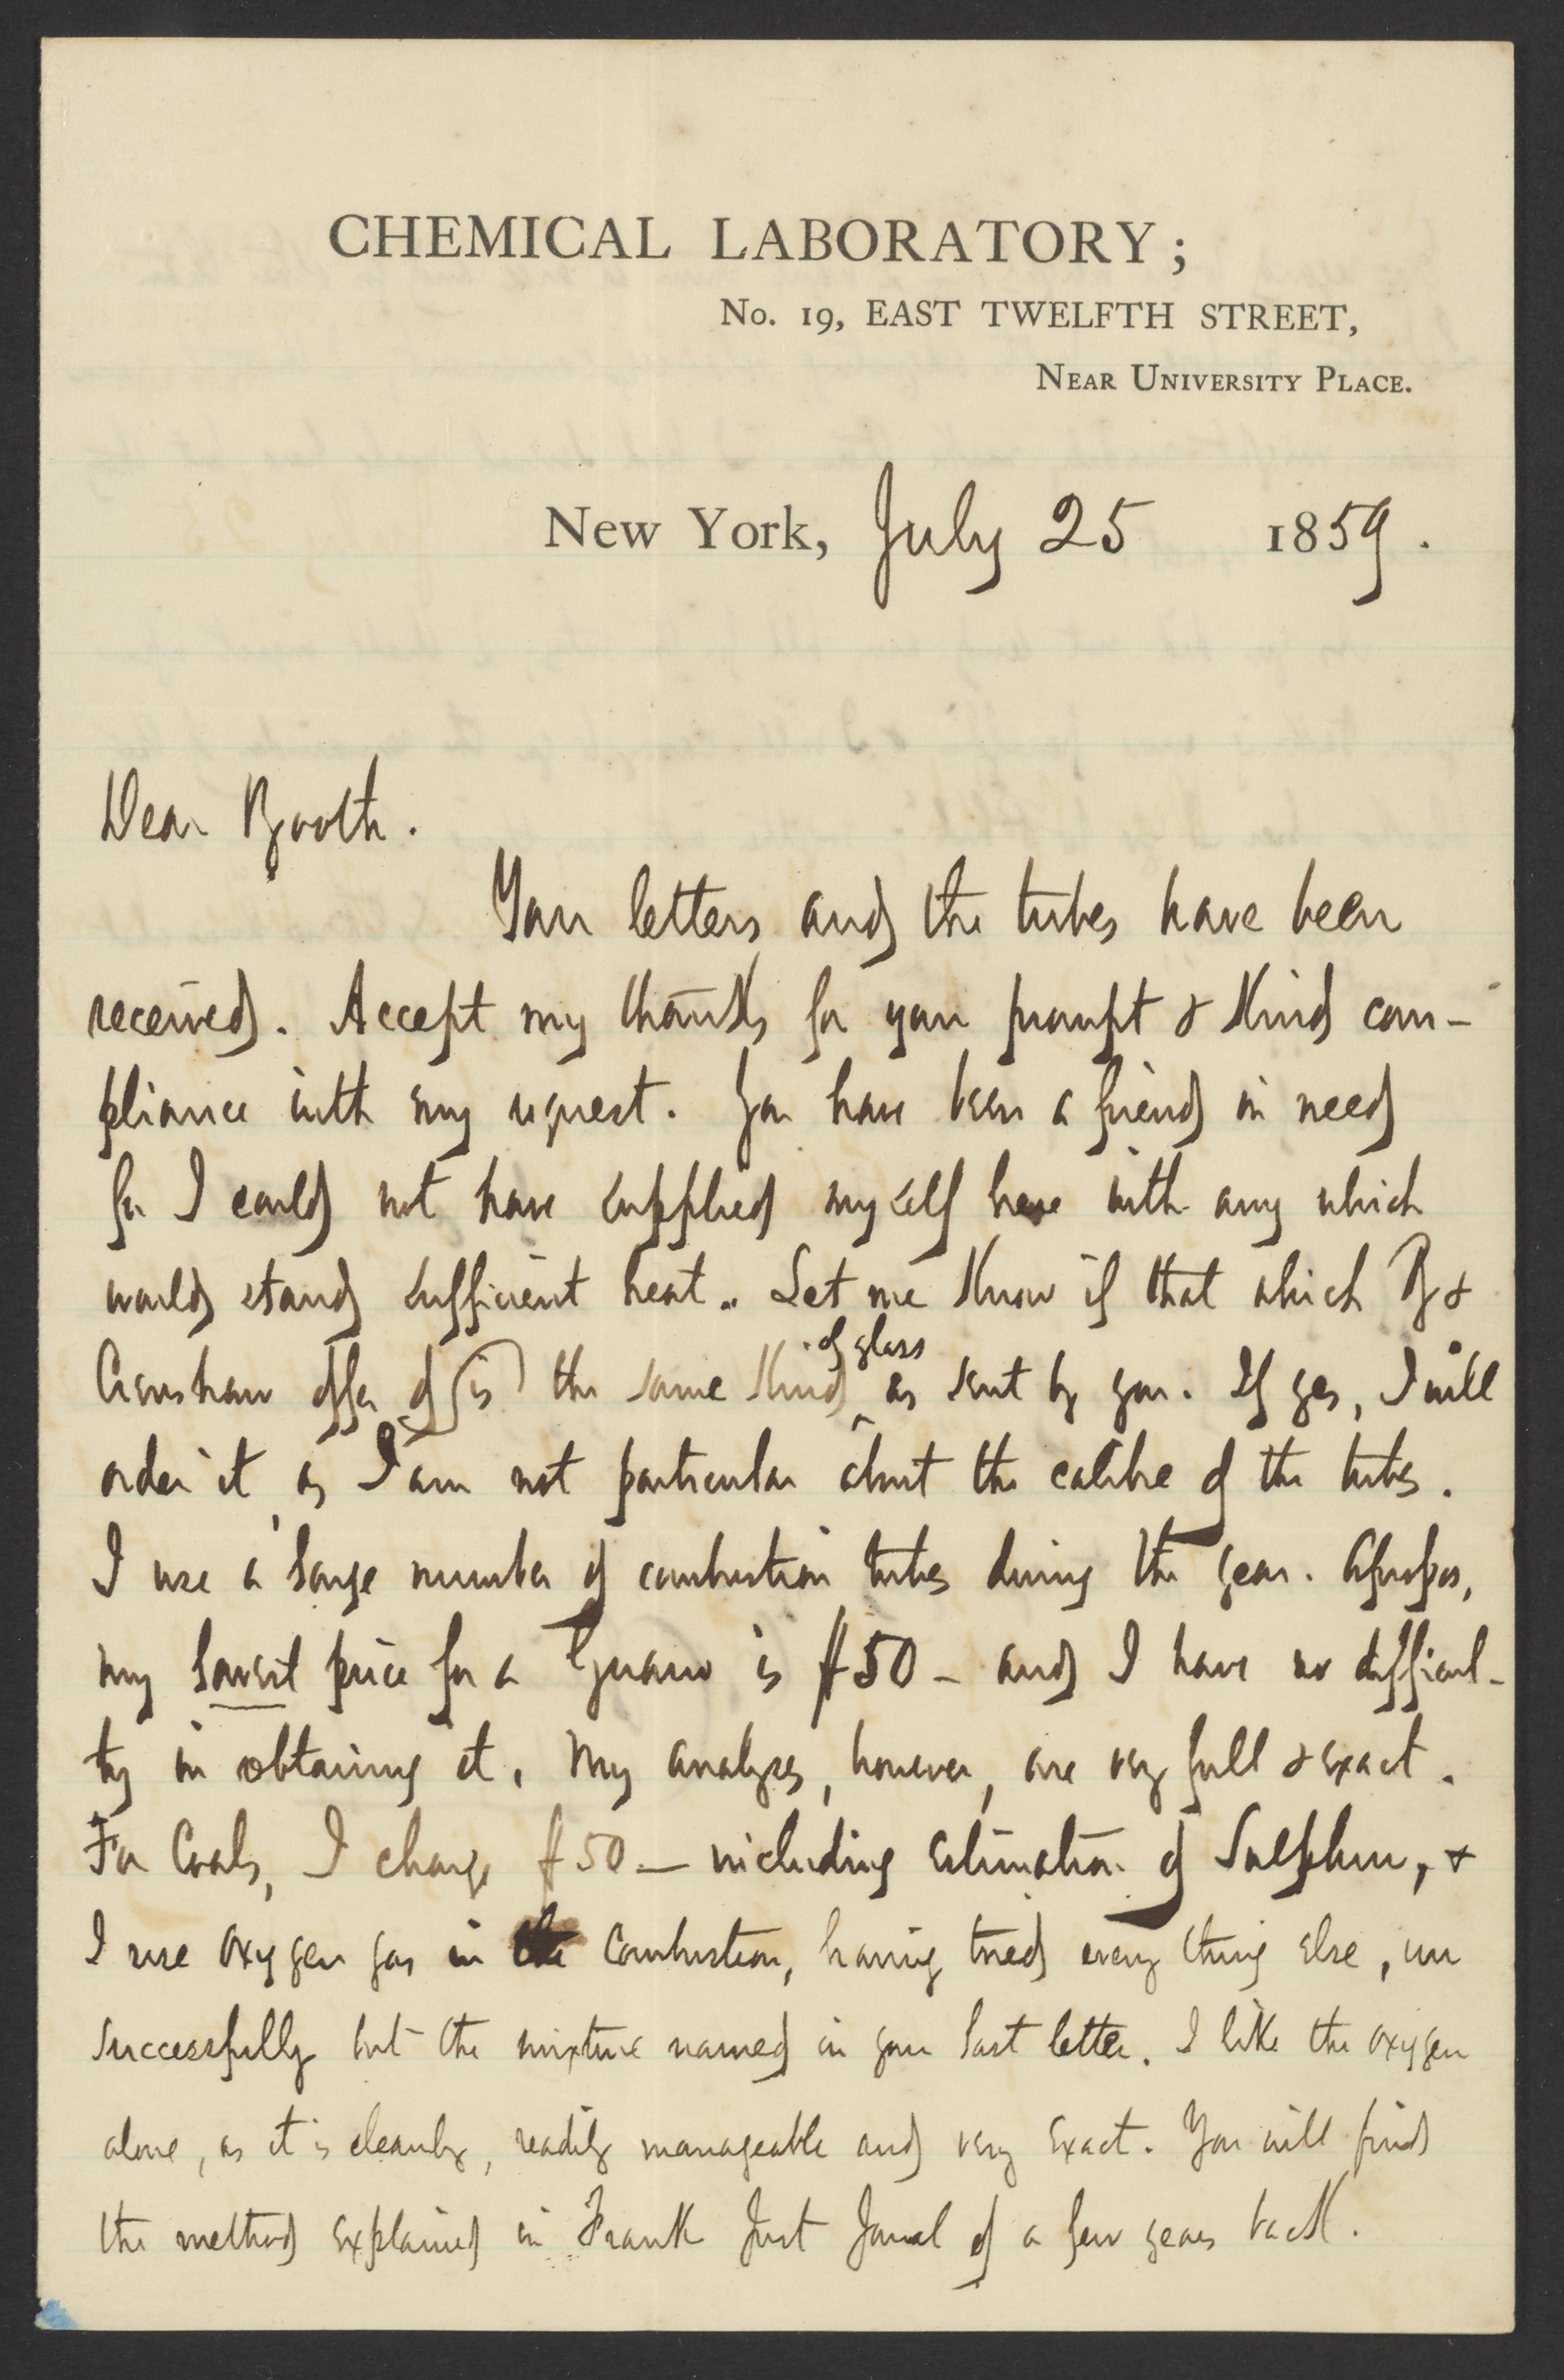 CHEMICAL LABORATORY;
No. 19, EAST TWELFTH STREET,
NEAR UNIVERSITY PLACE.
New York, July 25 1859.
Dear Booth.
Your letters and the tubes have been
received. Accept my thanks for your prompt & kind com-
pliance with my request. You have been a friend in need
for I could not have supplied myself here with any which
would stand sufficient heat. Let me know if that which B &
of glass
Crenshaw offer of (is) the same kind ^ as sent by you. If yes, I will
order it, as I am not particular about the calibre of the tubes.
I use a large number of combustion tubes during the year. Apropos,
my lowest price for a Guano is $50 - and I have no difficul-
ty in obtaining it. My analyses, however, are very full & exact.
For Coals, I charge $50 — including estimation of Sulphur, &
I use oxygen gas in the combustion, having tried every thing else, un
successfully but the mixture named in your last letter. I like the oxygen
alone, as it is cleanly, readily manageable and very exact. You will find
the method explained in Frank Inst Journal of a few years back.